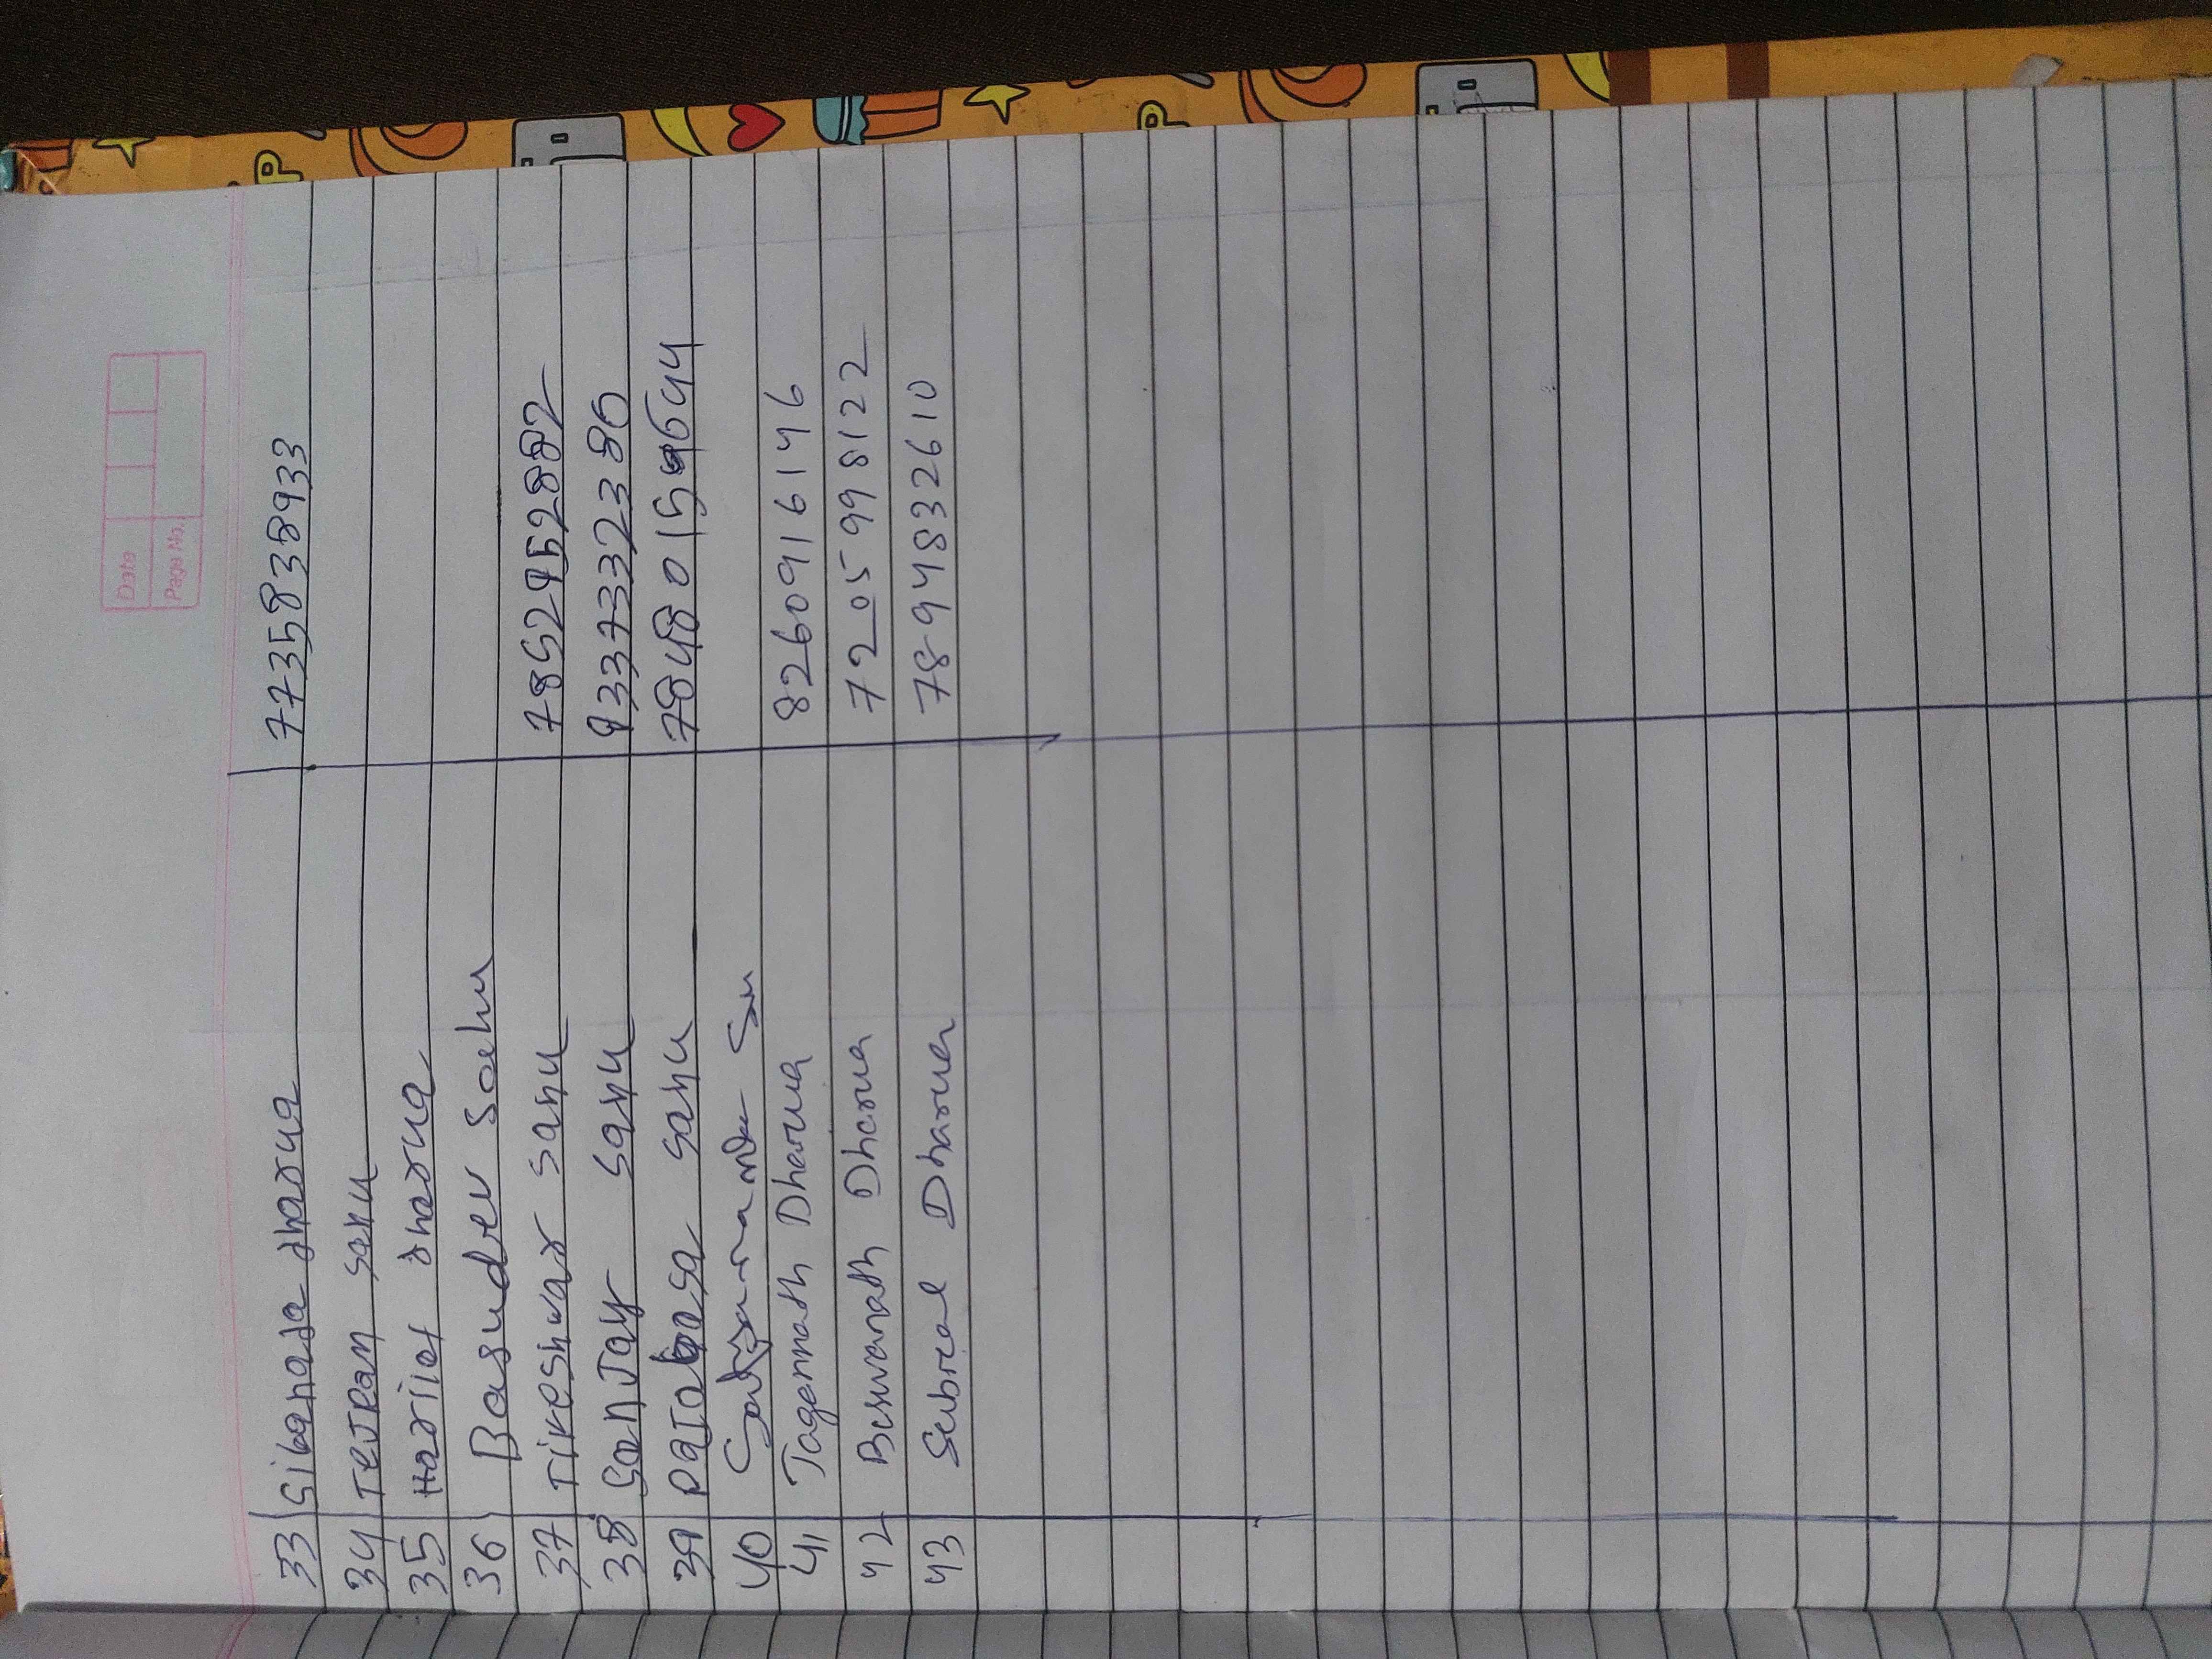 Date
Page No.
33 Sibanada dharua 7735838933
34 TeJRam Sahu
35 Harilal dharua
36 Basudev Sahu
37 Tikeshwar Sahu 7852952882
38 SanJay Sahu 9337332386
39 Sahu
40
41 Jagannath Dharua 8260916146
42 Biswanath Dharua 7205998122
43 Dharua 7894832610